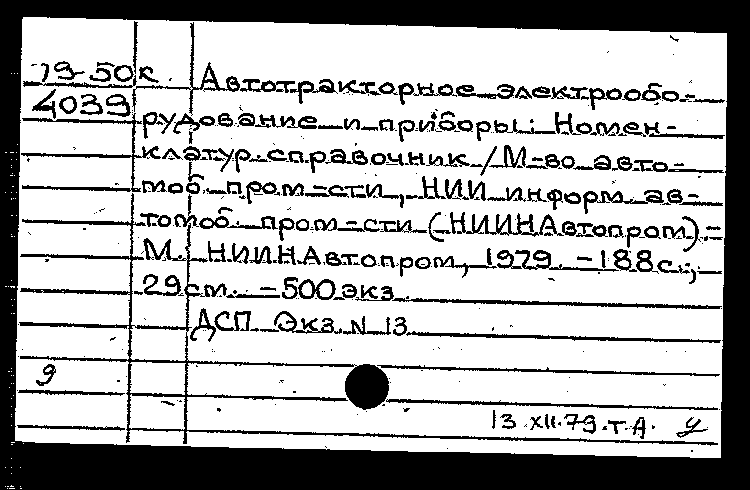 79-50к Автотракторное электрообо-
4039 рудование и приборы: Номен-
клатур. справочник / М-во авто-
моб. пром-сти, НИИ информ. ав-
томоб. пром-сти (НИИНАвтопром).-
М.: НИИНАвтопром, 1979. - 188 с.;
29 см. - 500 экз.
ДСП Экз. N 13
9
13.XII.79.Т.А. У